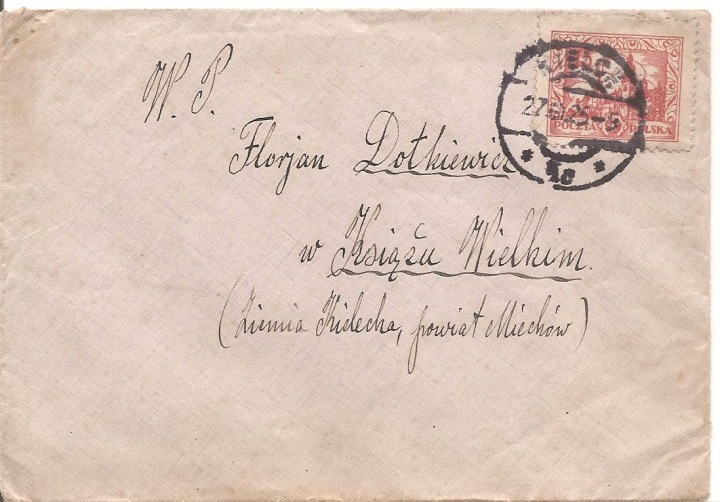 W. P.
Florjan Dotkiewicz
w Książu Wielkim.
(Ziemia Kielecka, powiat Miechów)
POCZTA POLSKA
* 1c *